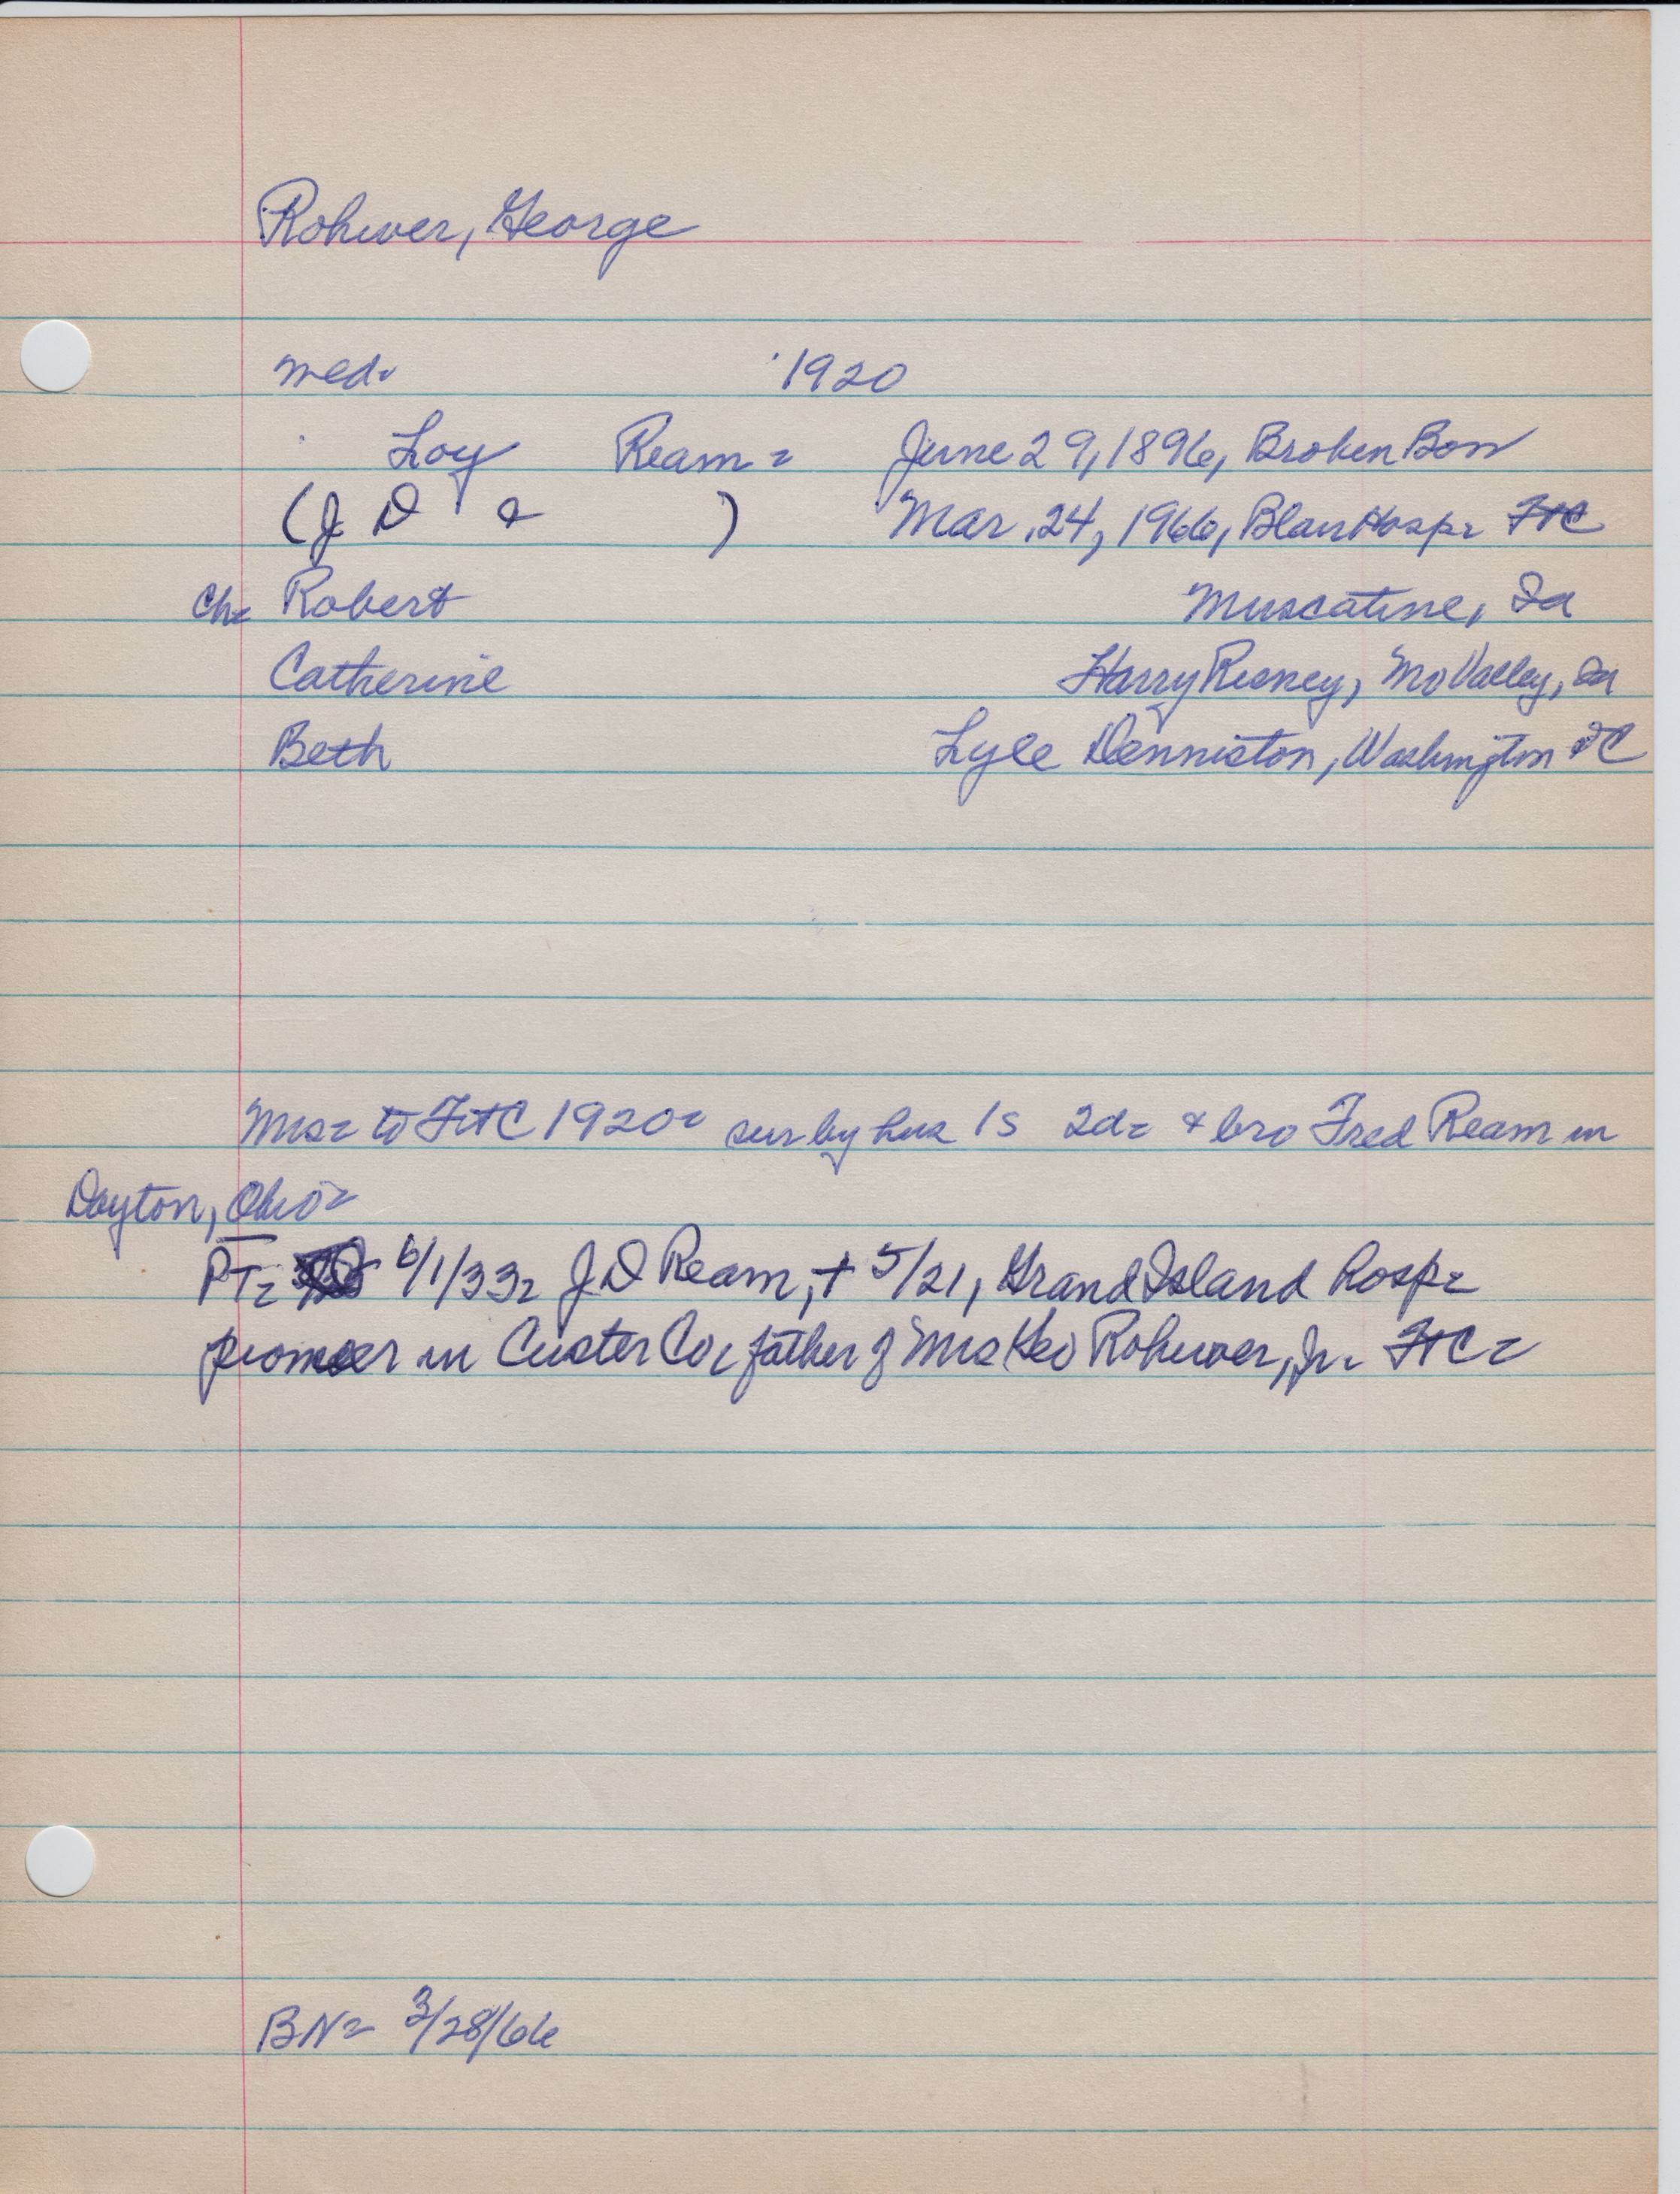 Rohwer, George
med. 1920
Loy Ream = June 29, 1896, Broken Bow
(J D & ) Mar. 24, 1966, Blair Hosp. FTC
Ch= Robert Muscatine, Ia
Catherine Harry Risney, Mo Valley, Ia
Beth Lyle Denniston, Washington DC
Mrs= to FTC 1920= sur by hus 1s 2d= & bro Fred Ream in
Dayton, Ohio=
PT= 6/1/33= J D Ream, + 5/21, Grand Island Hosp=
pioneer in Custer Co= father of Mrs Geo Rohwer, Jr. FTC=
BN= 3/28/66